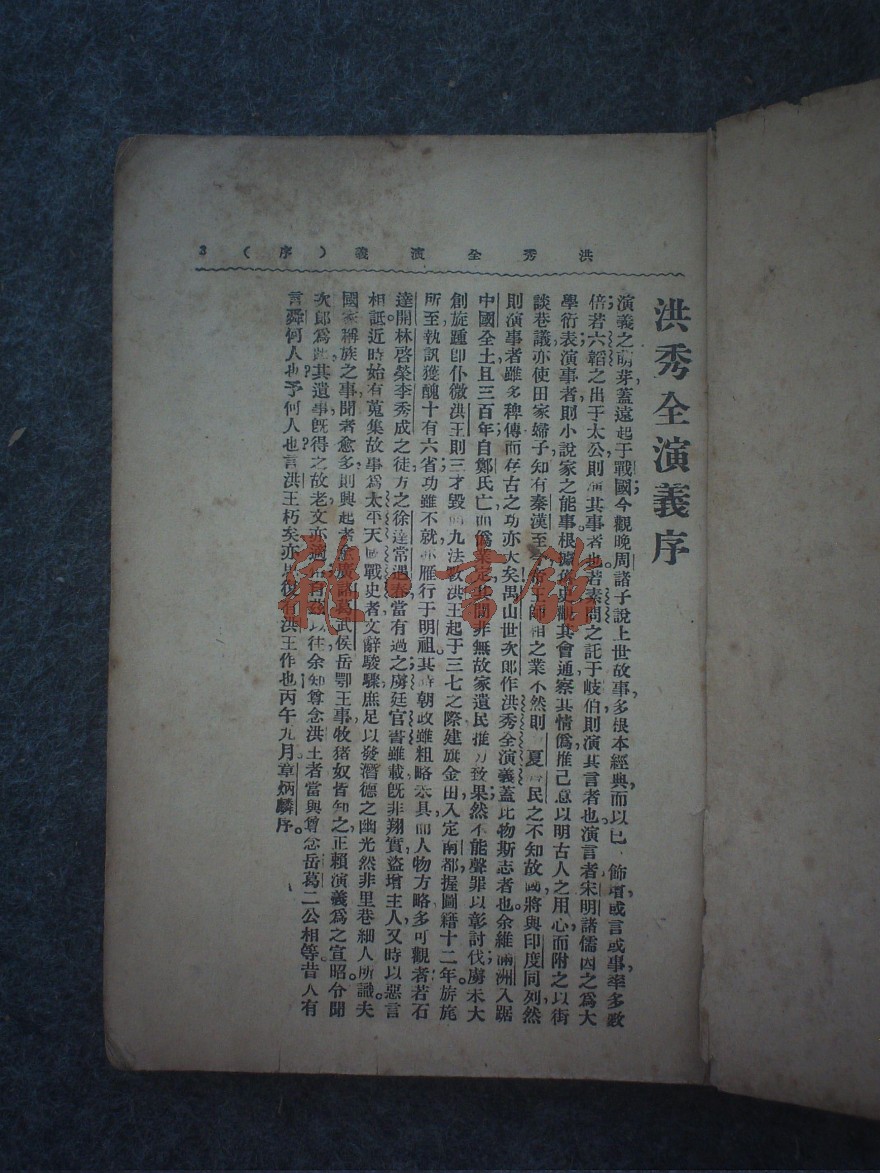 洪秀全演義（序） 3
洪秀全演義序
演義之萌芽蓋遠起于戰國今觀晚周諸子說上世故事多根本經典而以已 飾墳或言或事率多數
倍若六韜之出于太公則演其事者也若素問之託于岐伯則演其言者也演言者宋明諸儒因之為大
學衍表演事者則小說家之能事根據舊史觀其會通察其情偽推己意以明古人之用心而附之以街
談巷議亦使田家婦子知有秦漢至今帝王師相之業不然則 夏 民之不知故國將與印度同列然
則演事者雖多稗傳而存古之功亦大矣禺山世次郎作洪秀全演義蓋比物斯志者也余維滿洲入踞
中國全土且三百年自鄭氏亡而偽業定其間非無故家遺民推刃致果然不能聲罪以彰討伐虜未大
創旋踵卽仆微洪王則三才毀而九法斁洪王起于三七之際建旗金田入定南都握圖籍十二年旂旄
所至執訊獲醜十有六省功雖不就亦雁行于明祖其時朝政雖粗略未具而人物方略多可觀者若石
達開林啓榮李秀成之徒方之徐達常遇春當有過之虜廷官書雖載旣非翔實盜增主人又時以惡言
相詆近時始有蒐集故事為太平天國戰史者文辭駿驟庶足以發潛德之幽光然非里巷細人所識夫
國家稱族之事聞者愈多則興起者愈廣諸葛武侯岳鄂王事牧猪奴皆知之正賴演義為之宣昭今聞
次郎為此其遺事旣得之故老文亦適俗自茲以往余知尊念洪王者當與尊念岳葛二公相等昔人有
言舜何人也予何人也言洪王朽矣亦思復有洪王作也丙午九月章炳麟序。
雜·書館